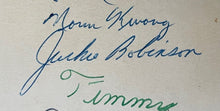 Noun Kwong
Jackie Robinson
Timmy